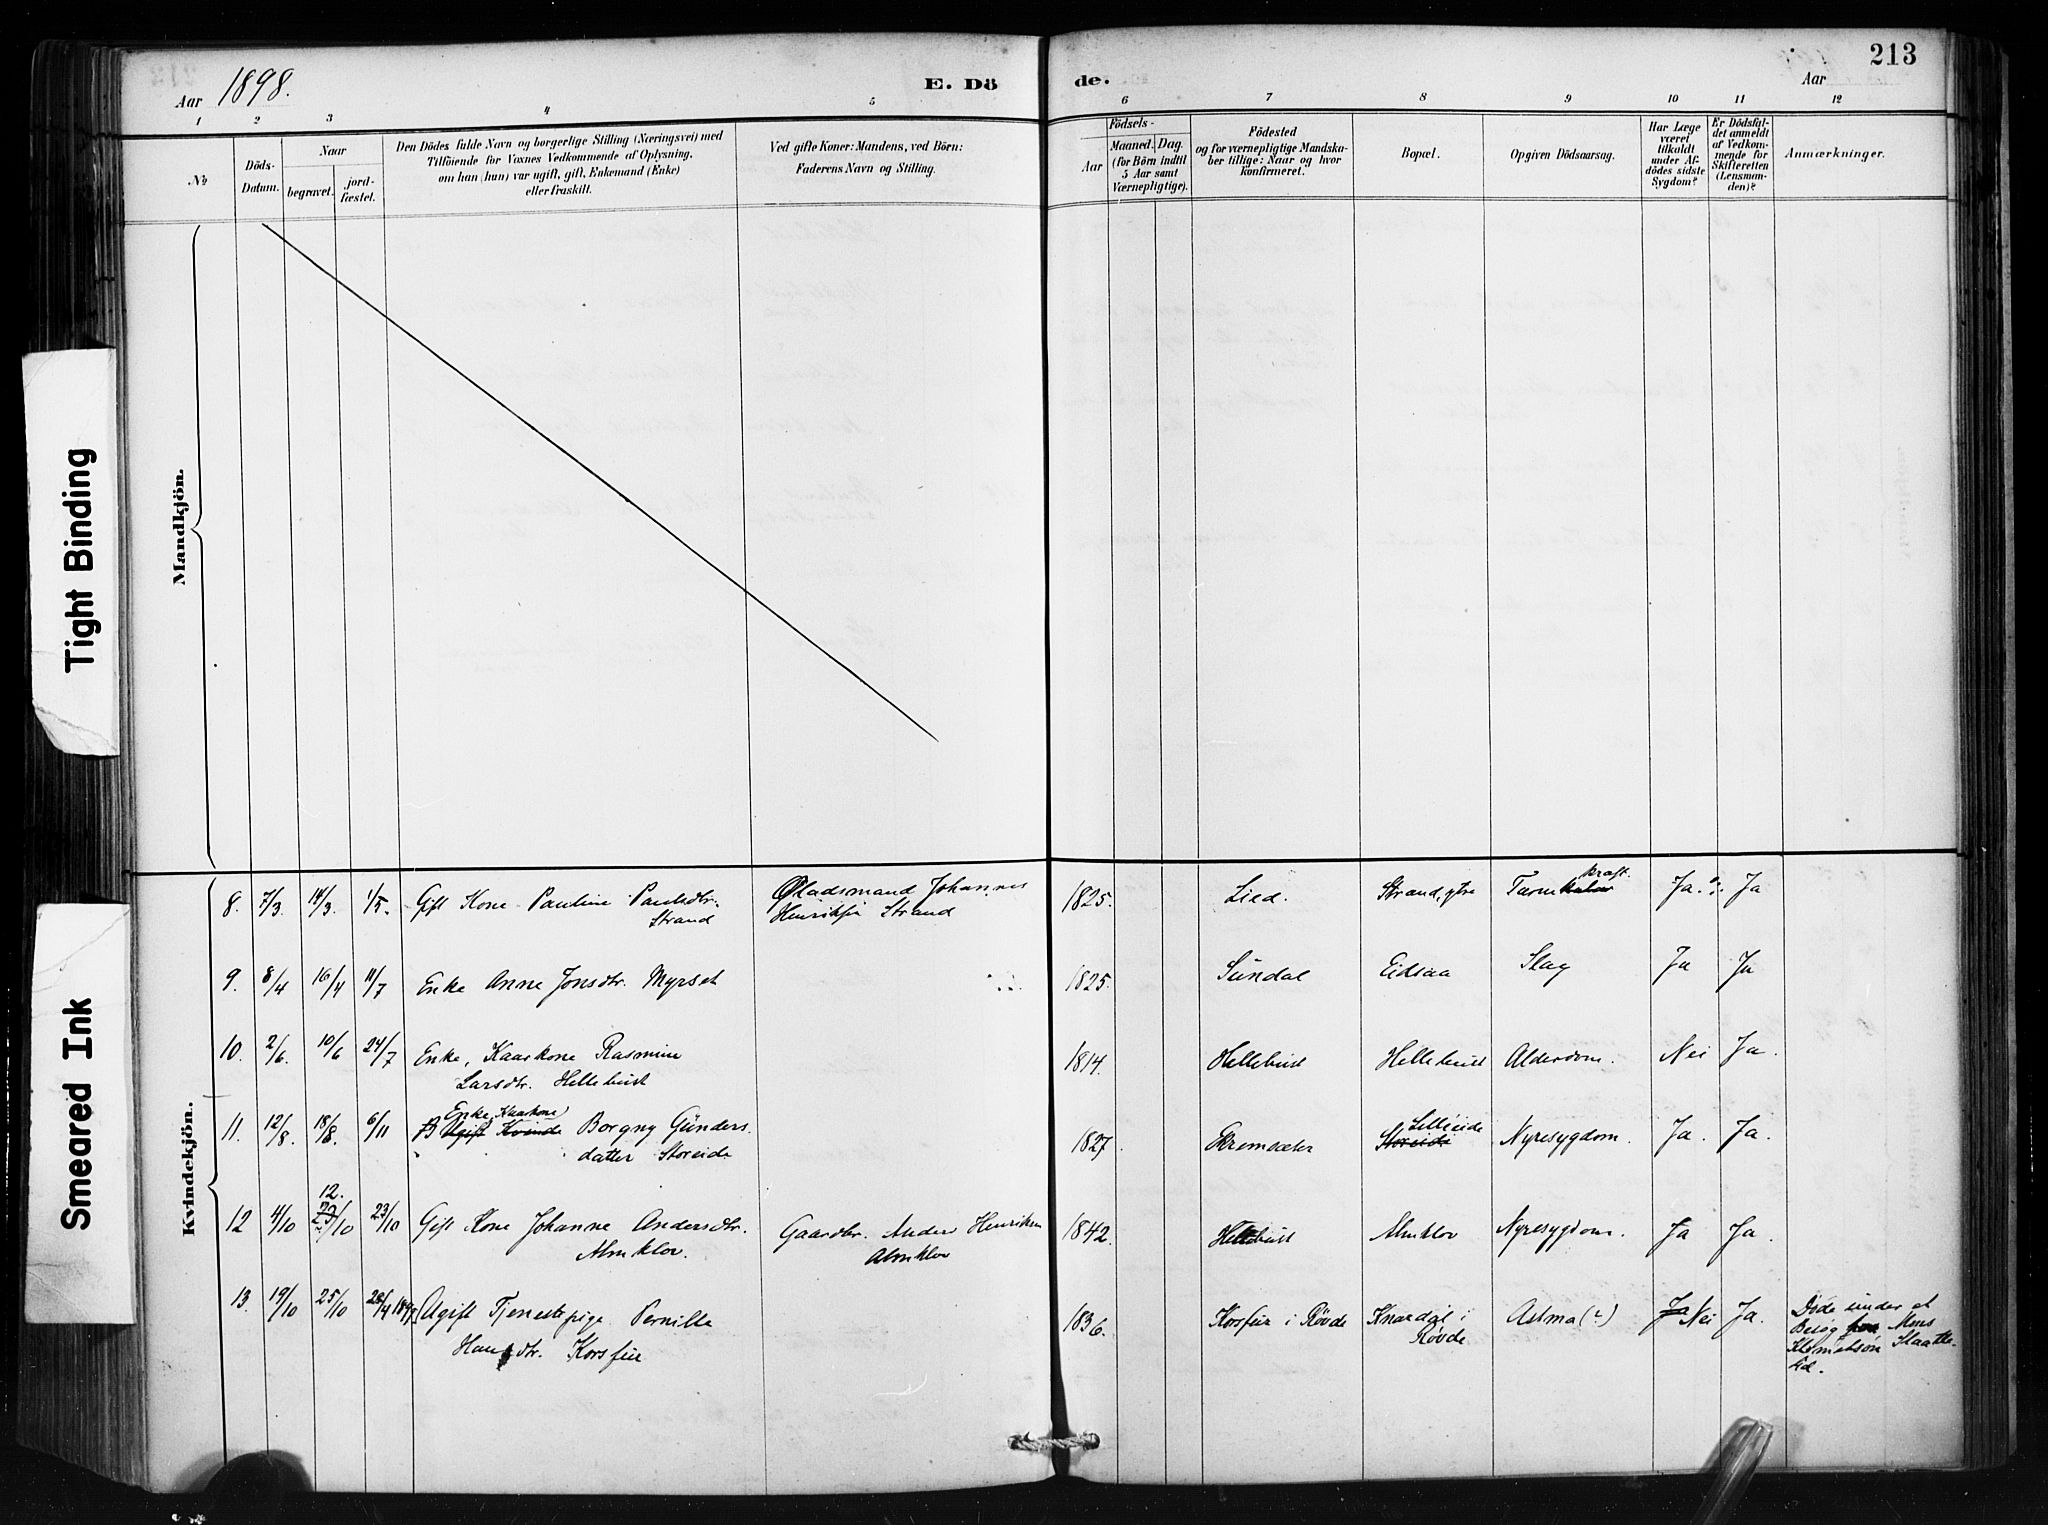 213
Aar 1898.
E. Dö
de.
Aar
1 2 3 4 5 6 7 8 9 10 11 12
No
Döds-
Datum.
Naar
begravet.
jord-
fæstet.
Den Dödes fulde Navn og borgerlige Stilling (Næringsvei) med
Tilföiende for Voxnes Vedkommende af Oplysning,
om han (hun) var ugift, gift, Enkemand (Enke)
eller fraskilt.
Ved gifte Koner: Mandens, ved Börn:
Faderens Navn og Stilling.
Födsels-
Aar
Maaned. Dag.
(for Börn indtil
5 Aar samt
Værnepligtige).
Födested
og for værnepligtige Mandska-
ber tillige: Naar og hvor
konfirmeret.
Bopæl.
Opgiven Dödsaarsag.
Har Læge
været
tilkaldt
under Af-
dödes sidste
Sygdom?
Er Dödsfal-
det anmeldt
af Vedkom-
mende for
Skifteretten
(Lensman-
den)?
Anmærkninger.
Mandkjön.
Kvindekjön.
Tight Binding
Smeared Ink
8. 7/3. 14/3. 1/5. Gift Kone Pauline Paulsdtr. Strand
Johannes
Strand
1825. Lied. Strand, ytre Tarm kræft. Ja. Ja
9. 8/4 16/4 11/7 Enke Anne Jonsdtr. Myrset
1825. Sundal Eidsaa Slag Ja Ja
10. 2/6. 10/6 24/7 Enke, Kaarkone Rasmine
Larsdtr. Hellebust
1814. Hellebust Hellebust Alderdom. Nei Ja.
11. 12/8. 18/8. 6/11 Enke, Kaarkone
Ugift Kvinde Borgny Gunders
datter Storeide
1827 Lilleeide
Storeide Nyresygdom. Ja. Ja.
12 4/10 12.
/10 23/10 Gift Kone Johanne Andersdtr.
Almklov.
Gaardbr. Anders Henriksen
Almklov
1842. Hellebust Almklov Nyresygdom. Ja Ja.
13. 19/10 25/10 Ugift Tjenestepige Pernille
Hansdtr. Korsfur
1836. Korsfur i Rövde Knardal i
Rövde Astma (?) Ja Nei Ja.
Döde under et
Besög Mons